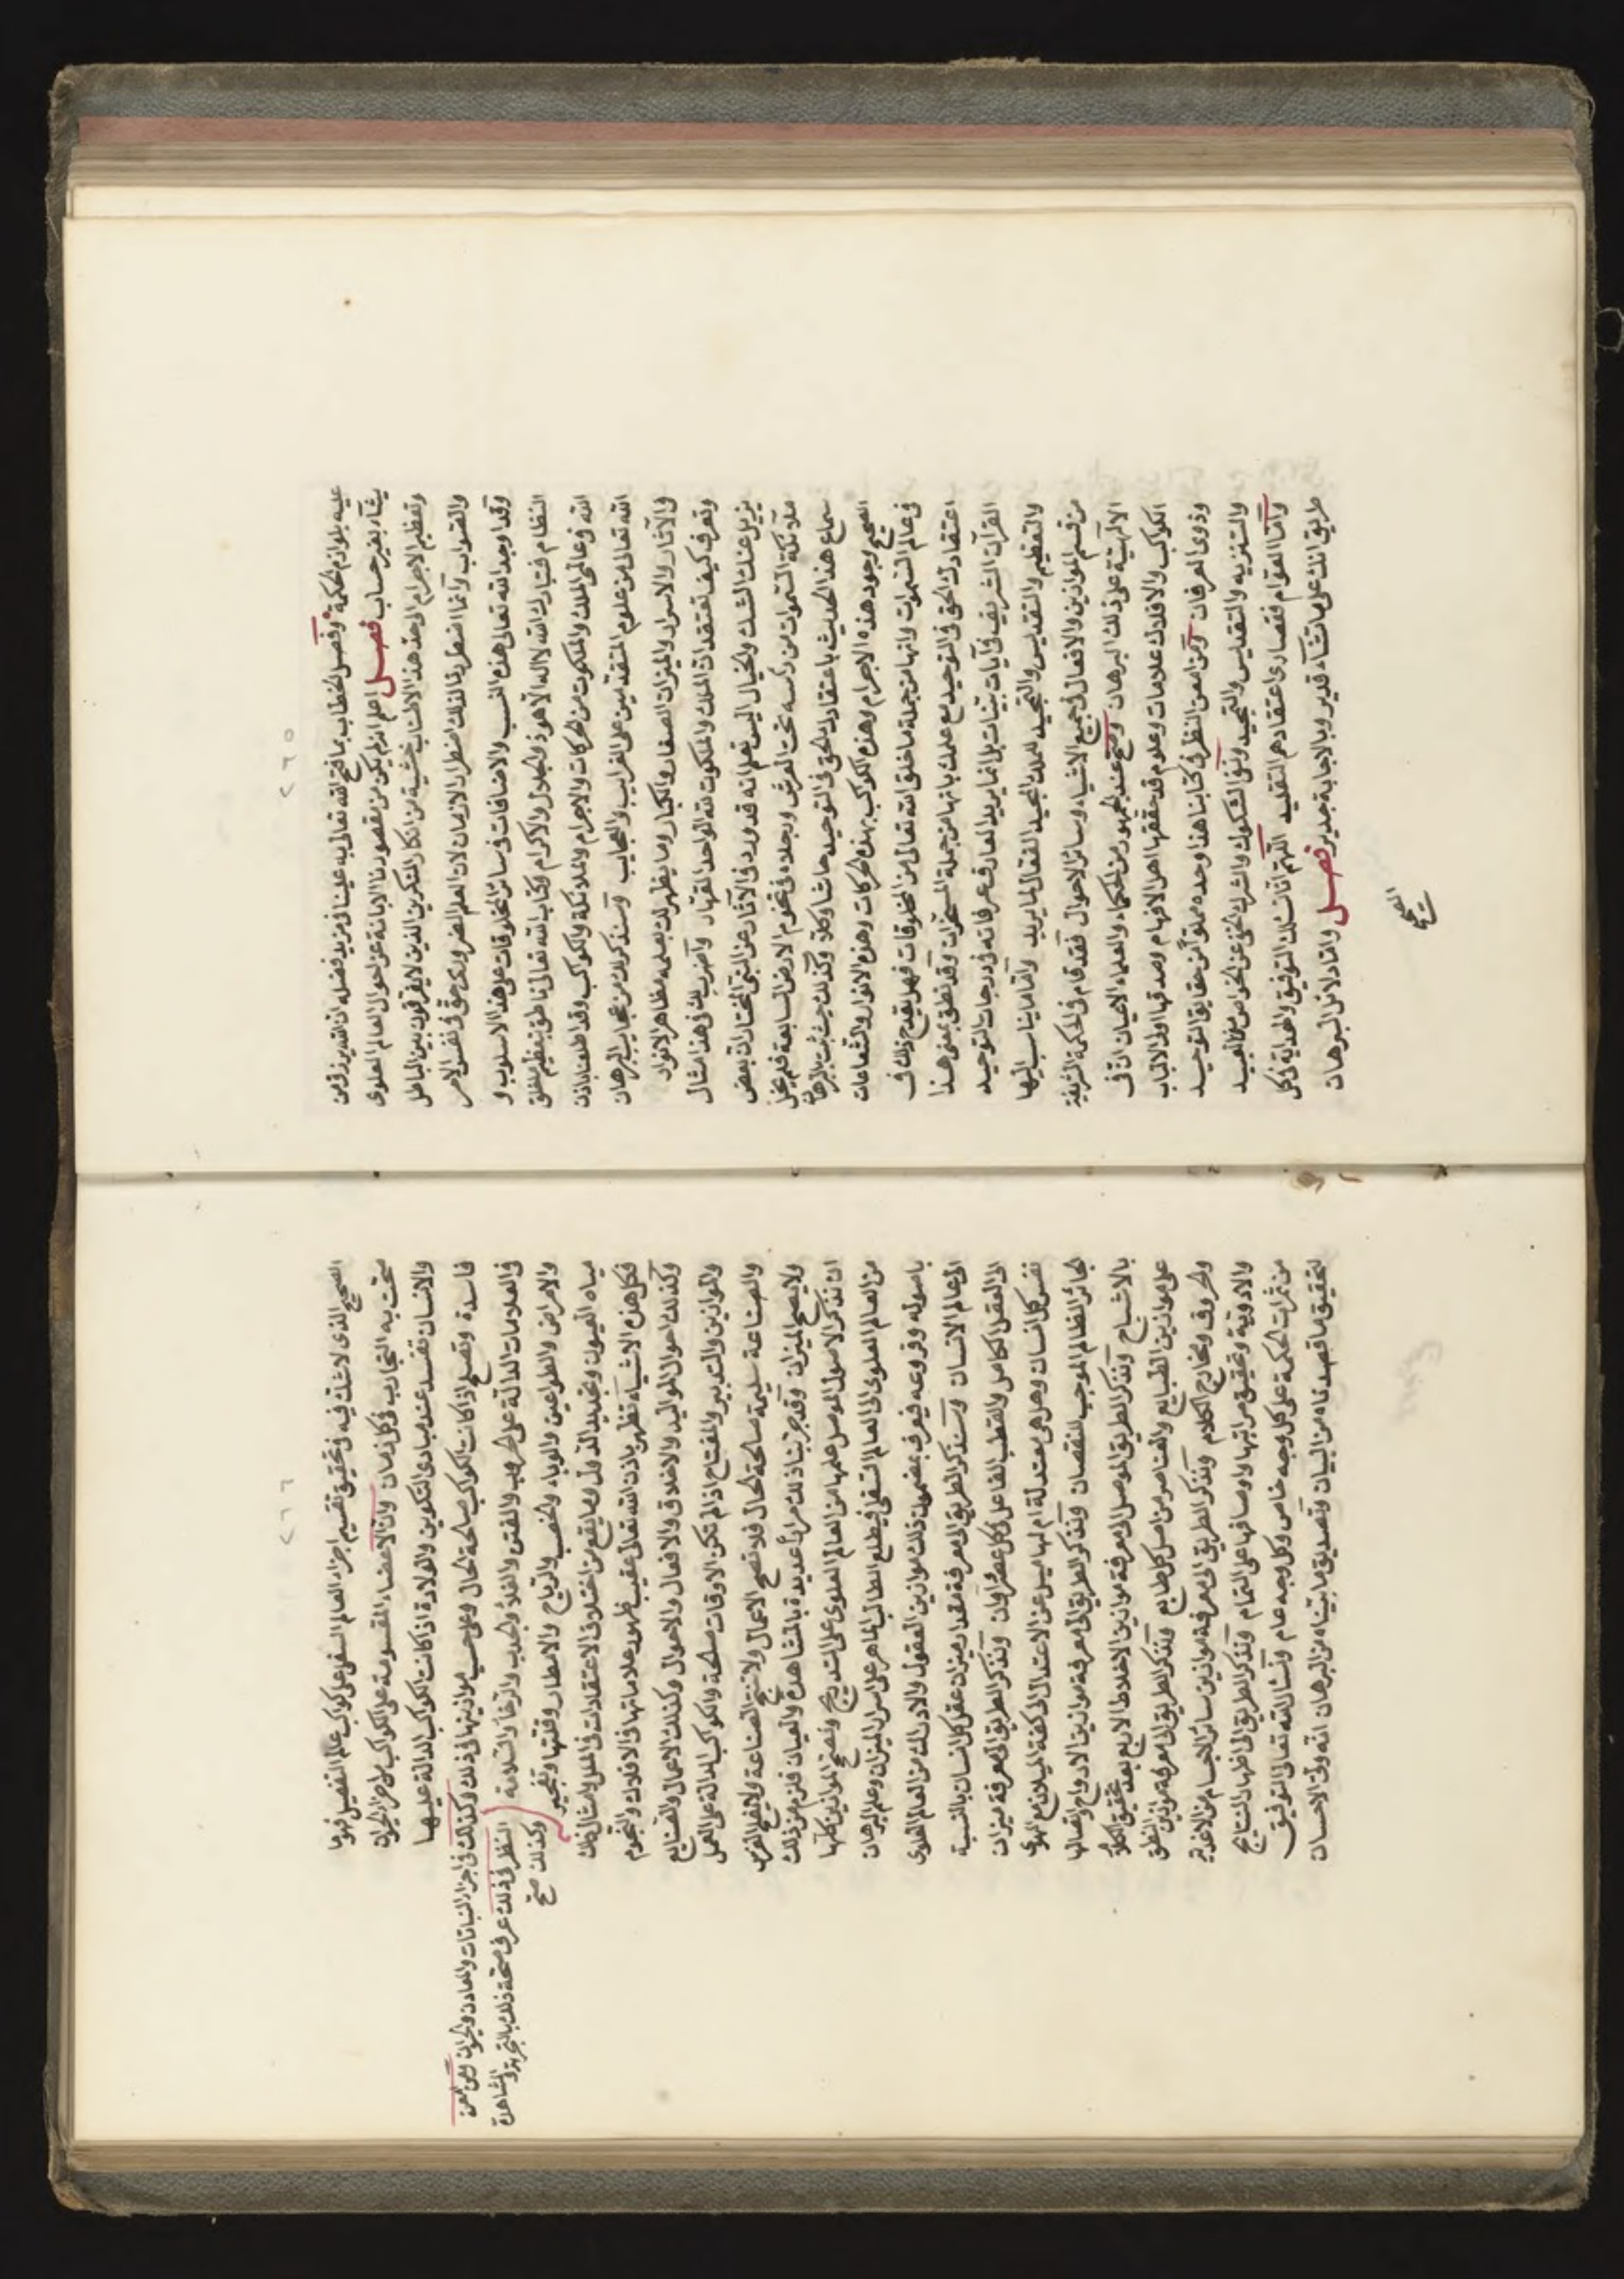 ٢٦٥
عليه بلوازم الحكمة وفصل الخطاب بما فتح الله تعالى به علينا من مزيد فضله ان الله يرزق من
يشاء بغير حساب فصل اعلم انه لم يكن من مقصودنا الابانة عن احوال العالم العلوى
وتعظيم الاجرام الى حد هذا الاطناب خشية من انكار المنكرين الذين لا يفرقون بين الباطل
والصواب وانما اضطرنا لذلك اضطراب الازمان لان العلم الضرورى حق فى نفس الامر
وقد اوجد الله تعالى هذه النسب والاضافات فى سائر المخلوقات على هذا الاسلوب و
النظام فتبارك الله لا اله الا هو ذو الجلال والاكرام وكتاب الله تعالى ناطق بتعظيم ما خلق
الله فى عالمى الملك والملكوت من الحركات والاجرام والملائكة والكواكب وقد اطلعنا باذن
الله تعالى من علوم المتقدمين على الغرايب والعجايب وسنذكر لك من عجايب البرهان
والآثار والاسرار والميزان الصغار والكبار وما يظهر لك بعلمه مظاهر الانوار
وتعرف كيف تعتقد ان الملك والملكوت لله الواحد القهار واضرب لك فى هذا مثال
يزيل عنك الشك والخيال اليس تعلم انه قد ورد فى الآثار عن النبى المختار ان بعض
ملائكة السموات من رأسه تحت العرش ورجلاه فى تخوم الارض السابعة فلم يخل
سماع هذا الحديث باعتقادك الحق فى التوحيد حاشا وكلا وكذلك حيث ثبت بالبرهان
الصحيح وجود هذه الاجرام وهذه الكواكب بهذه الحركات وهذه الانوار والشعاعات
فى عالم السموات وانها من جملة ما خلق الله تعالى من المخلوقات فهل يقدح ذلك فى
اعتقادك الحق فى التوحيد مع علمك بانها من جملة المسخرات وقد نطق بمعنى هذا
القرآن الشريف فى آيات بينات بل انما يريد العارف عرفانه فى درجات التوحيد
والتعظيم والتقديس والتمجيد للملك المجيد الفعال لما يريد واما ما يناسب اليها
من قسم الموازين والافعال فى جميع الاشياء وسائر الاحوال فقد قام فى الحكمة الشريفة
الالهية على ذلك البرهان وصح عند الجمهور من الحكماء والعلماء الاعيان ان فى
الكواكب والافلاك علامات وعلوم قد حققها اهل الافهام وصدقها اولو الالباب
وذوى العرفان ومن امعن النظر فى كتابنا هذا وحده مملوا من حقايق التوحيد
والتنزيه والتقديس والتمجيد ونفى الشكوك والشرك الخفى عن الخواص من العبيد
واما العوام فقصارى اعتقادهم التقليد اللهم انا نسئلك التوفيق والهداية لكل
طريق انك على ما تشاء قدير وبالاجابة جدير فصل واما دلائل البرهان
الصحيح
٢٦٦
الصحيح الذى لا شك فيه فى تحقيق تقسيم اجزاء العالم السفلى على كواكب عالم التفصيل فهو ما
صحت به التجارب فى كل زمان وان الاعضاء المقسومة على الكواكب من اعضاء الحيوان
والانسان تفسد عند مبادى التكوين والولادة اذا كانت الكواكب الدالة عليها
فاسدة وتصلح اذا كانت الكواكب صالحة الحال وعلى حسب موازينها فى ذلك وكذلك فى اجزاء النباتات والمعادن والحيوان ومن امعن
النظر فى ذلك عرف صحة ذلك بالتجربة والمشاهدة وكذلك صح
فى العلامات الدالة على الحروب والفتن والغلاء والجدب والرخاء والسلامة
والامراض والطواعين والوباء والخصب والرياح والامطار وقلتها وتفجير
مياه العيون وتجديد الدول وما يقع من اختلاف الاعتقادات فى الملل وامثال ذلك
فكل هذه الاشياء تظهر باذن الله تعالى عقيب ظهور علاماتها فى الافلاك والنجوم
وكذلك احوال المواليد والاخلاق والافعال والاحوال وكذلك الاعمال والصنايع
والموازين والتدبير والمفتاح اذا لم تكن الاوقات صالحة والكواكب الدالة على العمل
والصناعة سليمة صالحة الحال فلا تصح الاعمال ولا تنتج الصناعة ولا يفلح الغرس
ولا يصح الميزان وقد جربنا ذلك مرارا عديدة بالمشاهدة والعيان فلزم من ذلك
ان نذكر الاصول الموصل علمها من العالم العلوى على التدريج وتصح الموازين كلها
من العالم العلوى الى العالم السفلى فيطلع الطالب الماهر على اسرار الميزان وعلم البرهان
باصوله وفروعه فيعرف بمضمون ذلك موازين العقول والادراك من العالم العلوى
الى عالم الانسان وسنذكر الطريق الى معرفة مقدار ميزان عقل كل انسان بالنسبة
الى العقل الكامل والقطب الفاعل فى كل عصر واوان ونذكر الطريق الى معرفة ميزان
نفس كل انسان وهل هى معتدلة ام لها ميل عن الاعتدال الى كفة الميلان مع الهوى
الجائز الظالم الموجب للنقصان ونذكر الطريق الى معرفة موازين الارواح واتصالها
بالاشباح ونذكر الطريق الموصل الى معرفة موازين الاخلاط الاربع بعد تحقيق الكل
على موازين الطبايع والعناصر من اصل كل طابع ونذكر الطريق الى معرفة موازين النطق
والحروف ومخارج الكلام ونذكر الطريق الى معرفة موازين سائر الاجسام من الاغذية
والادوية وتحقيق مراتبها واوصافها على التمام ونذكر الطريق الى اظهار النتايج
من ثمرات الحكمة على كل وجه خاص وكل وجه عام ونسئل الله تعالى التوفيق
لتحقيق ما قصدناه من البيان وتصديق ما بيناه من البرهان انه ولى الاحسان